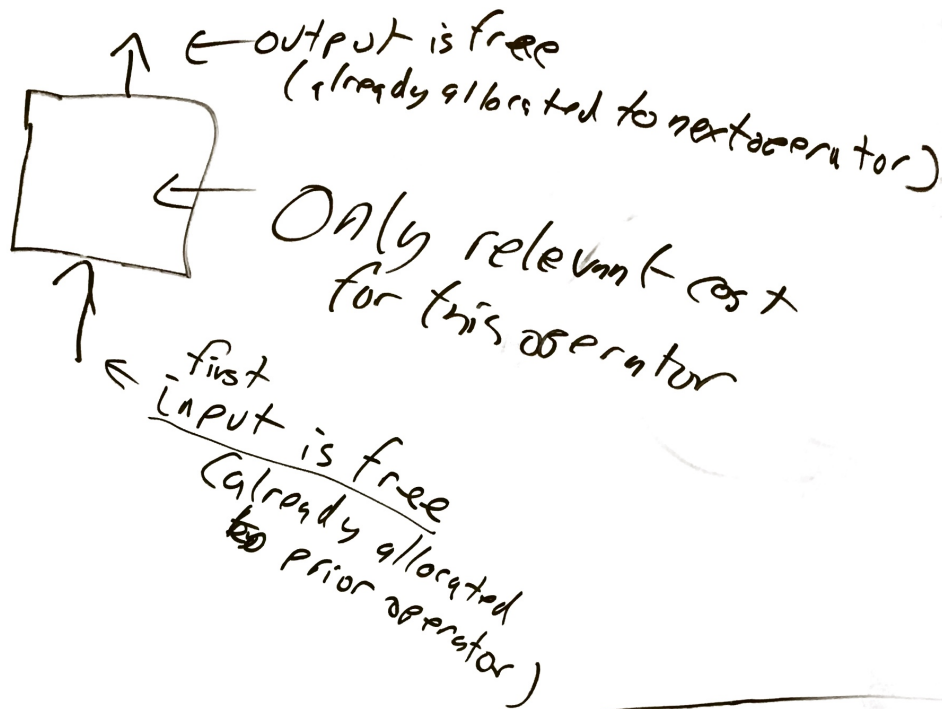 output is free
(already allocated to next operator)
Only relevant cost
for this operator
first
input is free
(already allocated
to prior operator)